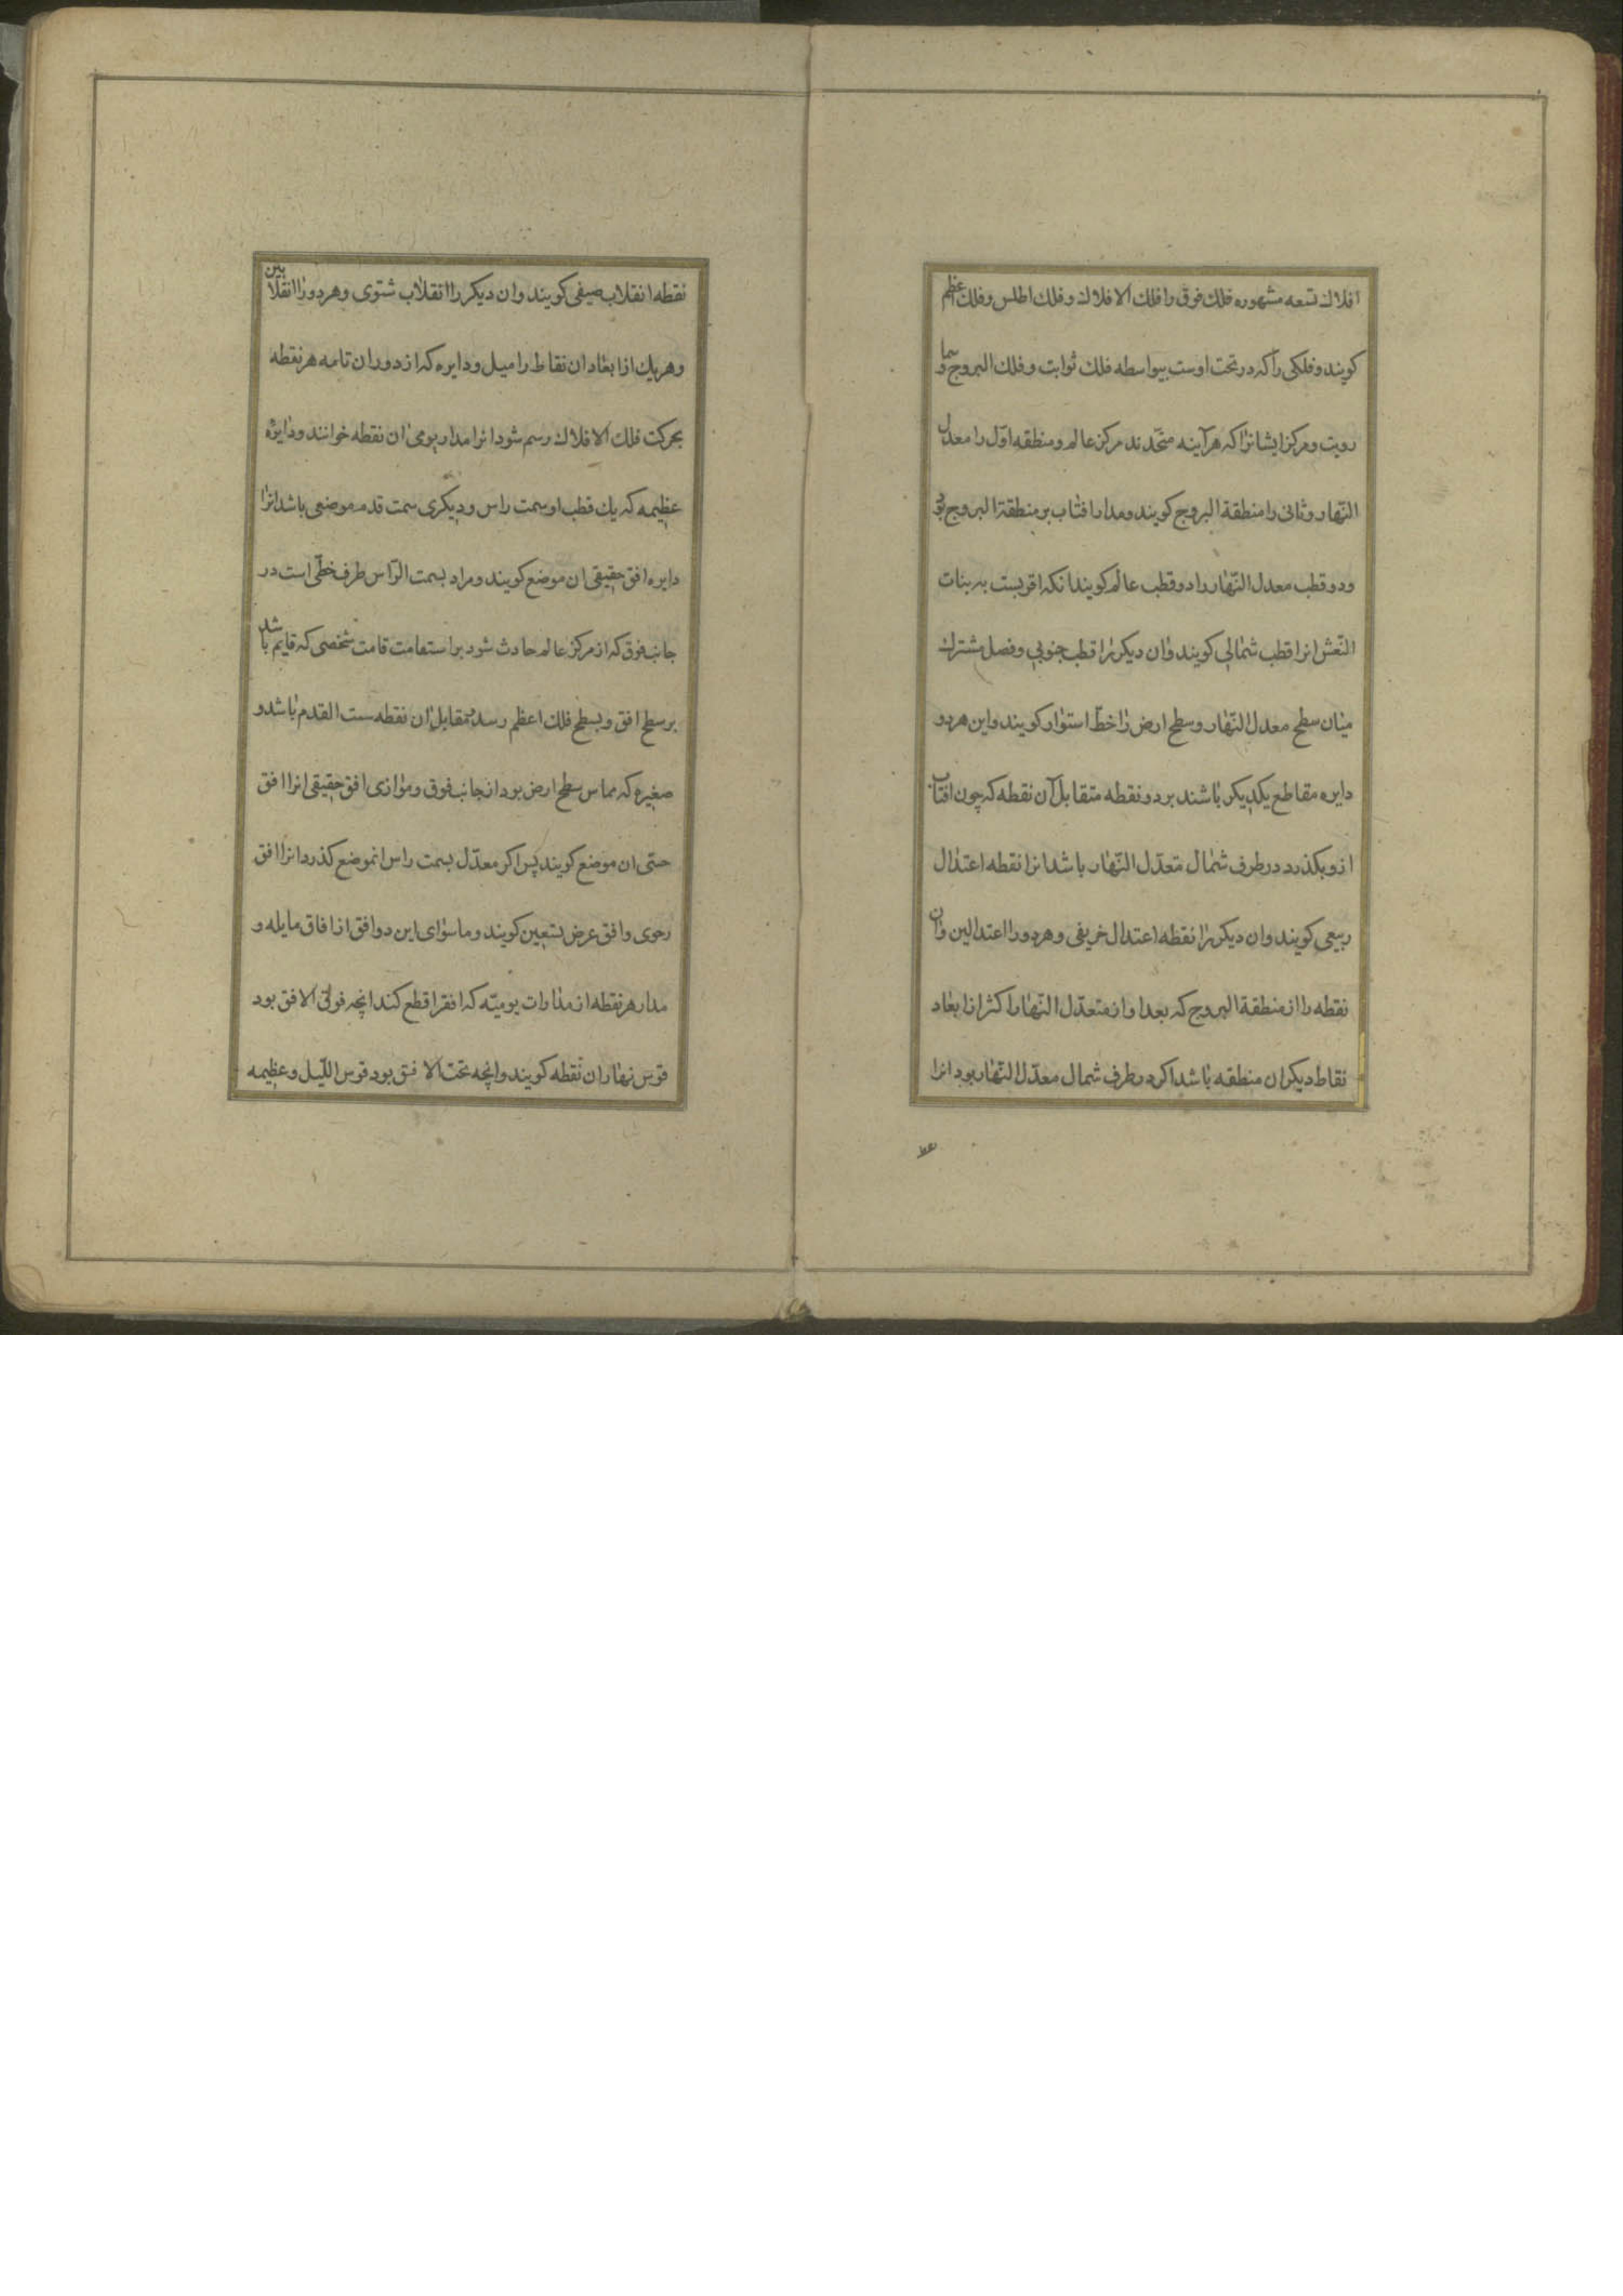 افلاك تسعه مشهوره فلك فوق را فلك الافلاك و فلك اطلس و فلك اعظم
كويند و فلكی را كه در تحت اوست بیواسطه فلك ثوابت و فلك البروج و سما
رویت و مركز ایشانرا كه هر آینه متحدند مركز عالم و منطقه اوّل را معدل
النّهار و ثانی را منطقة البروج كويند و مدار افتاب بر منطقة البروج بود
و دو قطب معدل النّهار را دو قطب عالم كويند انكه اقربست به بنات
النّعش انرا قطب شمالی كويند و ان ديكر را قطب جنوبی و فصل مشترك
میان سطح معدل النّهار و سطح ارض را خطّ استوار كويند و این هر دو
دایره مقاطع یكدیكر باشند بر دو نقطه متقابل آن نقطه كه چون افتاب
ازو بكذرد در طرف شمال معدّل النّهار باشد انرا نقطه اعتدال
ربیعی كويند و ان ديكر را نقطه اعتدال خریفی و هر دو را اعتدالین و ان
نقطه را از منطقة البروج كه بعد او از معدّل النّهار اكثر از ابعاد
نقاط ديكر ان منطقه باشد اكر در طرف شمال معدّل النّهار بود انرا
نقطه انقلاب صیفی كويند و ان ديكر را انقلاب شتوی و هر دو را انقلابین
و هر یك از ابعاد ان نقاط را میل و دایره كه از دوران تامه هر نقطه
بحركت فلك الافلاك رسم شود انرا مدار یومی ان نقطه خوانند و دایرهٔ
عظیمه كه یك قطب او سمت راس و دیكری سمت قدم موضعی باشد انرا
دایره افق حقیقی ان موضع كويند و مراد بسمت الرّاس طرف خطّی است در
جانب فوق كه از مركز عالم حادث شود بر استقامت قامت شخصی كه قایم باشد
بر سطح افق و بسطح فلك اعظم رسد و مقابل ان نقطه سمت القدم باشد و
صغیره كه مماس سطح ارض بود از جانب فوق و موازی افق حقیقی انرا افق
حسّی ان موضع كويند پس اكر معدّل بسمت راس انموضع كذرد انرا افق
رحوی و افق عرض تسعین كويند و ماسوای این دو افق از افاق مایله و
مدار هر نقطه از مدارات یومیّه كه افق را قطع كند انچه فوق الافق بود
قوس نهار ان نقطه كويند و انچه تحت الافق بود قوس اللّیل و عظیمه